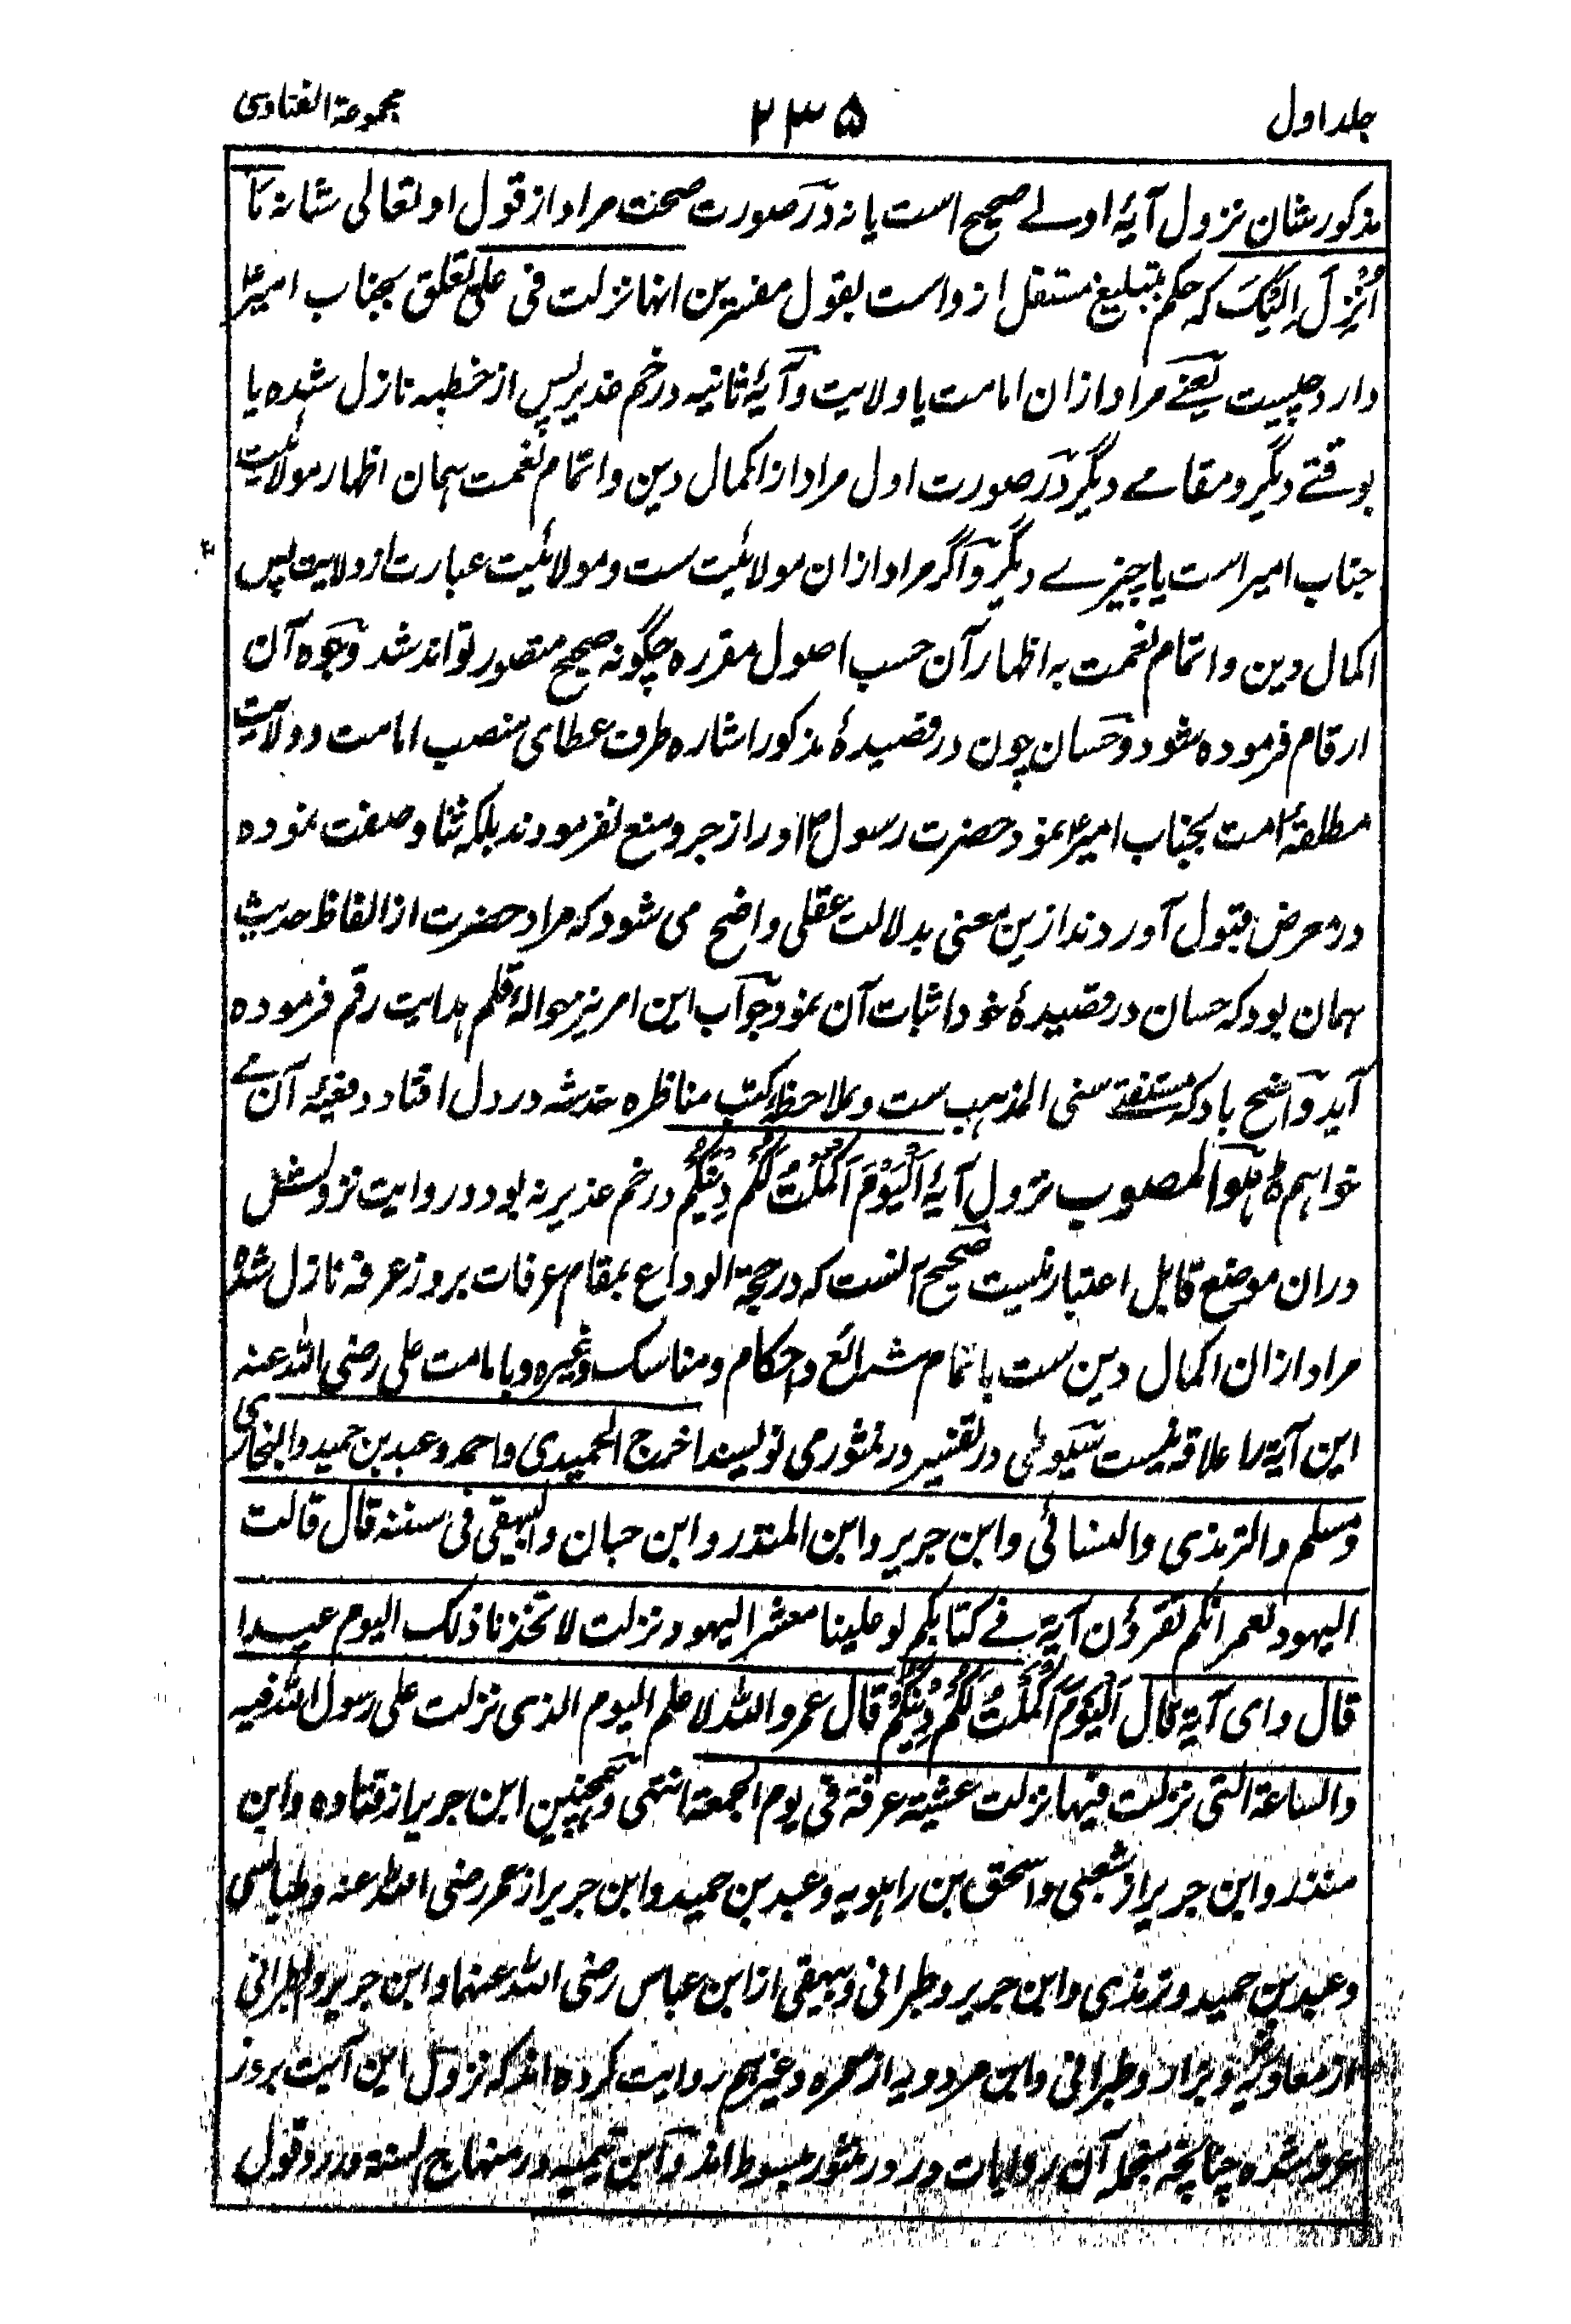 جلد اول
۲۳۵
مجموعة الفتاوى
مذکور شان نزول آیۂ اولے صحیح است یا نہ در صورت صحت مراد از قول او تعالی شانہ ما
اُنْزِلَ اِلَیْکَ کہ حکم بتبلیغ مستقل ازواست بقول مفسرین انہا نزلت فی علی تعلق بجناب امیرؑ
دارد چیست یعنے مراد ازان امامت یا ولایت و آیۂ ثانیہ در خم غدیر پس از خطبہ نازل شدہ یا
بوقتے دیگر و مقامے دیگر در صورت اول مراد از اکمال دین و اتمام نعمت ہمان اظہار مولائیت
جناب امیر است یا چیزے دیگر و اگر مراد ازان مولائیت ست و مولائیت عبارت از ولایت پس
اکمال دین و اتمام نعمت بہ اظہار آن حسب اصول مقررہ چگونہ صحیح متصور تواند شد وجوہ آن
ارقام فرمودہ شود و حسان چون در قصیدۂ مذکور اشارہ طرف عطای منصب امامت و ولایت
مطلقۂ امت بجناب امیرؑ نمود حضرت رسولؐ او را زجر و منع نفرمودند بلکہ ثنا و صفت نمودہ
در معرض قبول آوردند ازین معنی بدلالت عقلی واضح می شود کہ مراد حضرت از الفاظ حدیث
ہمان بود کہ حسان در قصیدۂ خود اثبات آن نمود جواب این امر نیز حوالۂ قلم ہدایت رقم فرمودہ
آید واضح باد کہ مستفتے سنی المذہب ست و بملاحظۂ کتب مناظرہ خدشہ در دل افتاد دفعیۂ آن مے
خواہم ہو المصوب نزول آیۂ اَلْیَوْمَ اَکْمَلْتُ لَکُمْ دِیْنَکُمْ در خم غدیر نہ بود و روایت نزولش
دران موضع قابل اعتبار نیست صحیح آنست کہ در حجة الوداع بمقام عرفات بروز عرفہ نازل شدہ
مراد ازان اکمال دین ست باتمام شرائع و احکام و مناسک وغیرہ و با مامت علی رضی اللہ عنہ
این آیۃ را علاقہ نیست سیوطی در تفسیر در منثور می نویسند اخرج الحمیدی و احمد و عبد بن حمید و البخاری
و مسلم و الترمذی و النسائی و ابن جریر و ابن المنذر و ابن حبان و البیہقی فی سننہ قال قالت
الیہود لعمر انکم تقرؤن آیۃ فے کتابکم لو علینا معشر الیہود نزلت لاتخذنا ذلک الیوم عیدا
قال و ای آیۃ قال اَلْیَوْمَ اَکْمَلْتُ لَکُمْ دِیْنَکُمْ قال عمر و اللہ لا علم الیوم الذی نزلت علی رسول اللہ فیہ
و الساعة التی نزلت فیہا نزلت عشیة عرفة فی یوم الجمعة انتہی و ہمچنین ابن جریر از قتادہ و ابن
منذر و ابن جریر از شعبی و اسحق بن راہویہ و عبد بن حمید و ابن جریر از عمر رضی اللہ عنہ و طیالسی
و عبد بن حمید و ترمذی و ابن جریر و طبرانی و بیہقی از ابن عباس رضی اللہ عنہما و ابن جریر و طبرانی
از معاویہ و بزار و طبرانی و ابن مردویہ از سمرہ و غیرہم روایت کردہ اند کہ نزول این آیت بروز
عرفہ شدہ چنانچہ جملہ آن روایات در در منثور مبسوط اند و ابن تیمیہ در منہاج السنة در رد قول